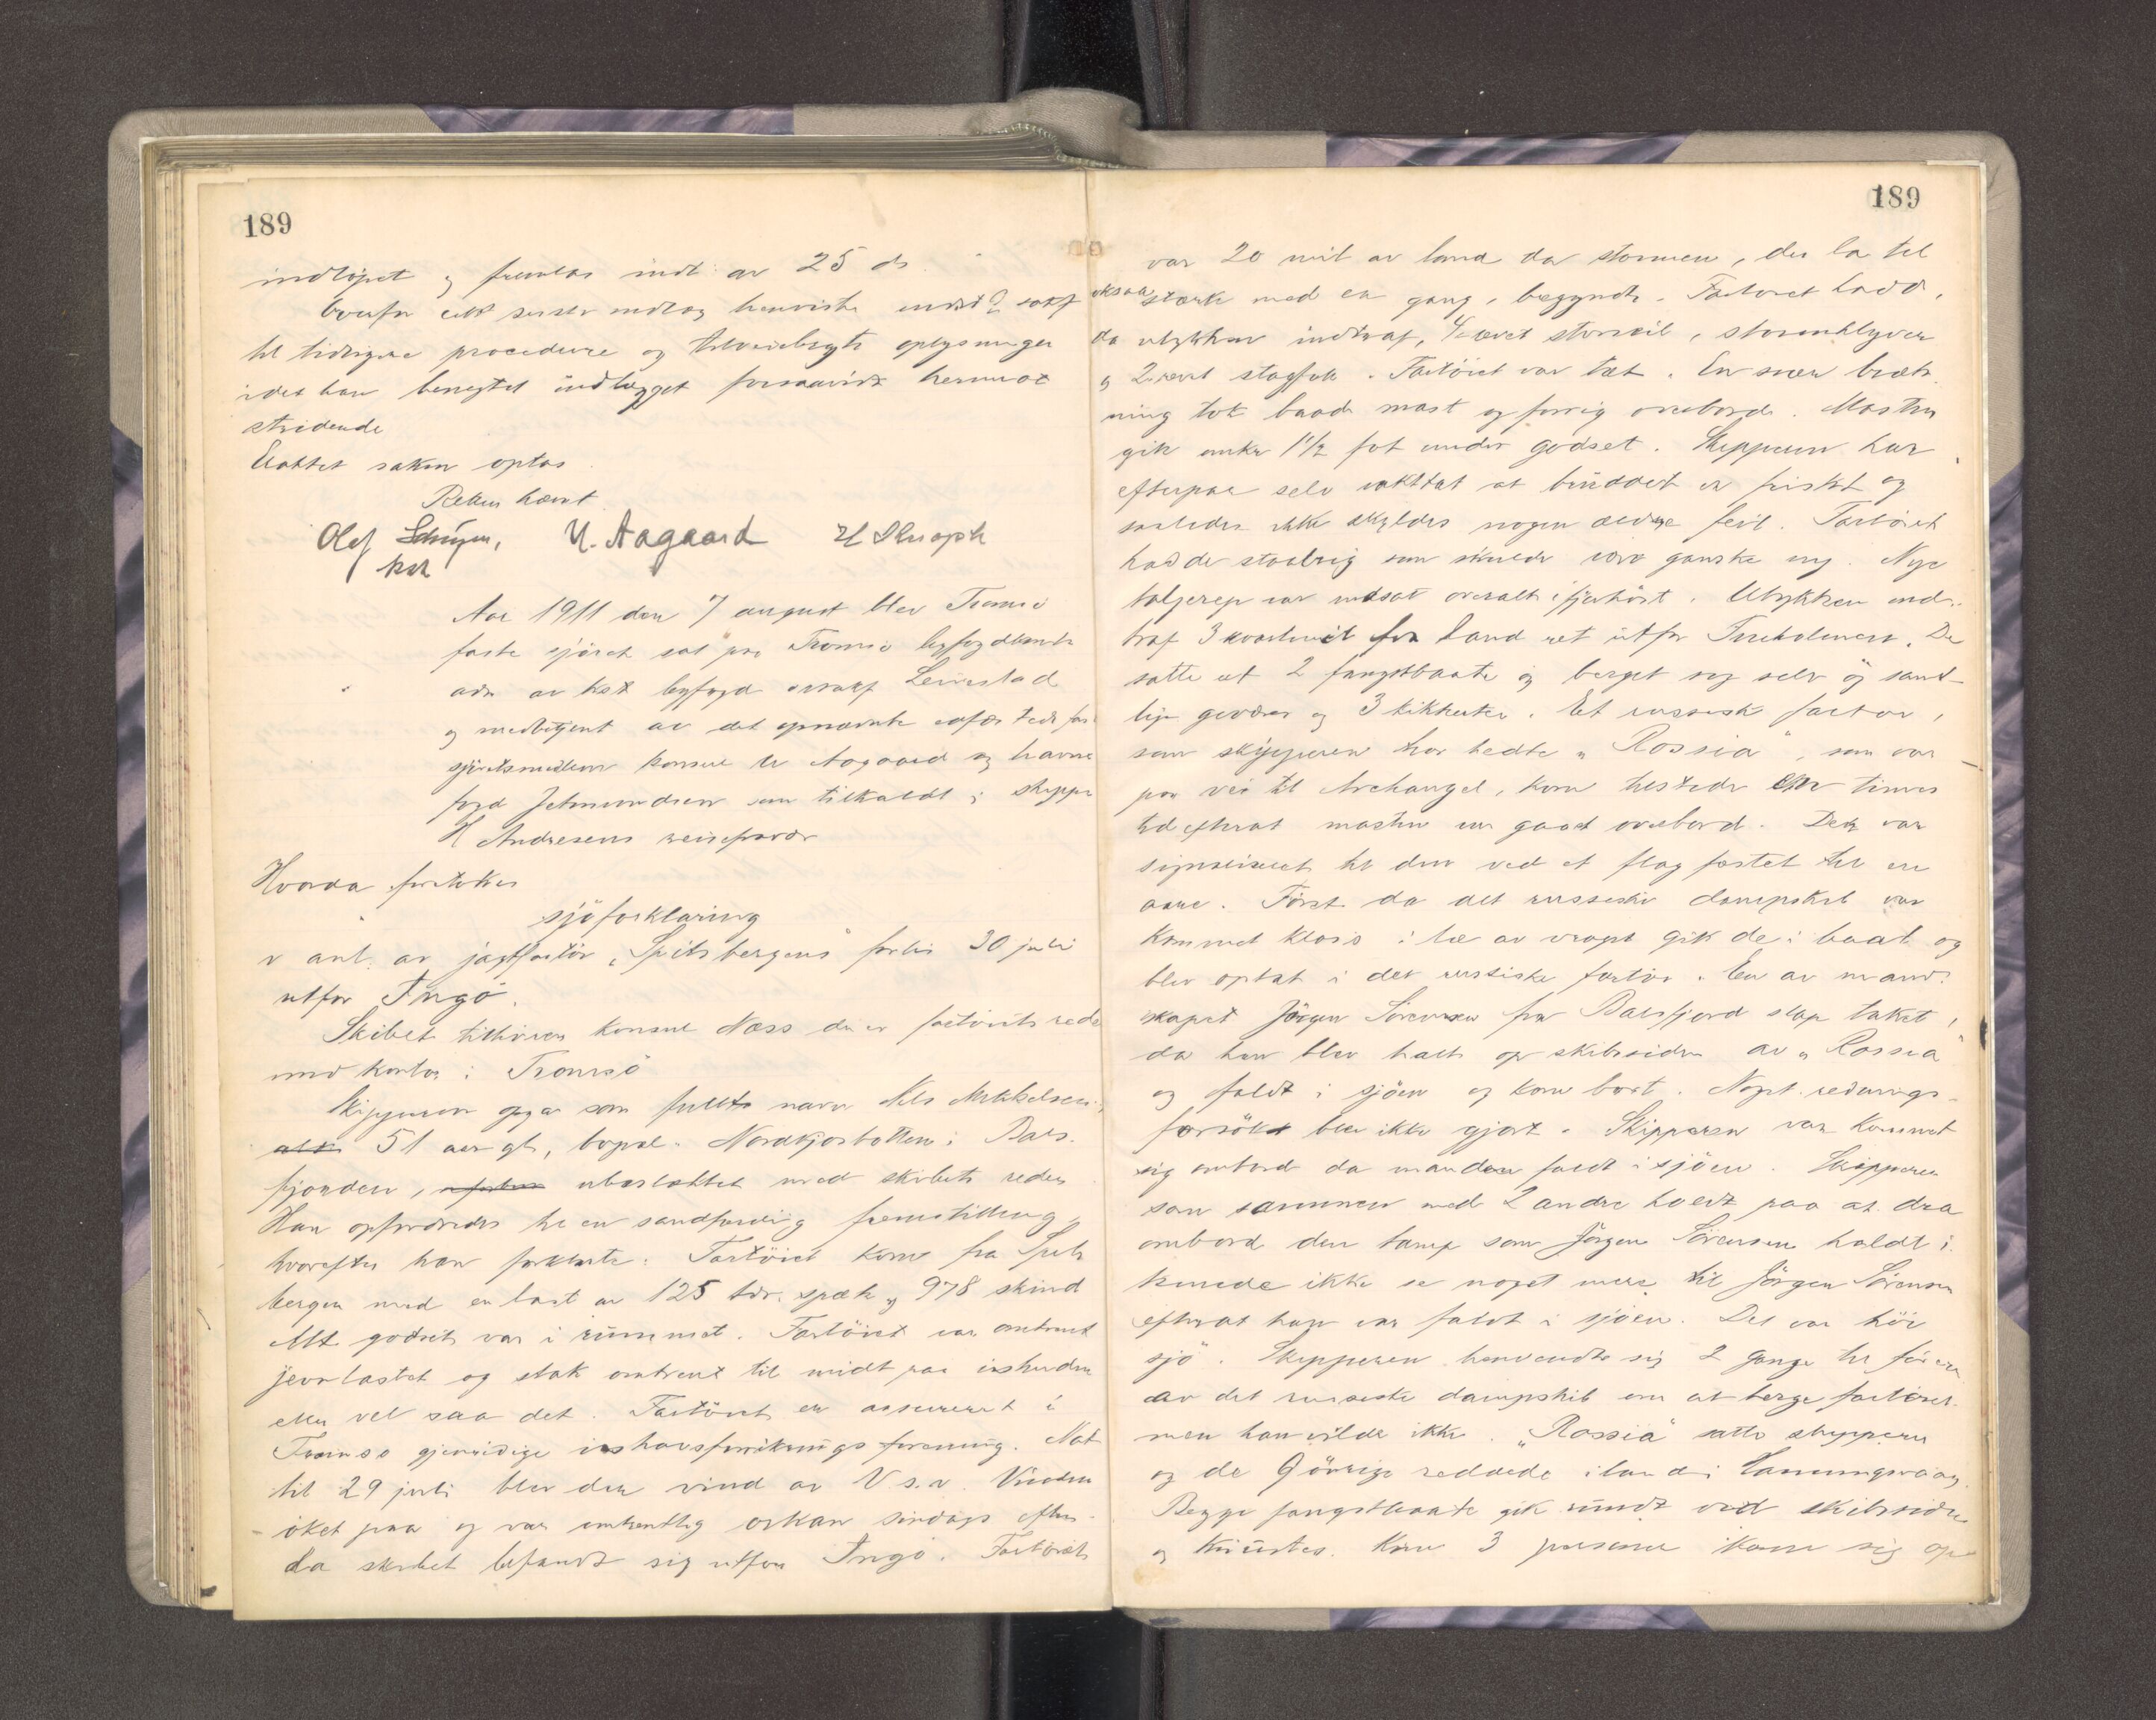 189
indløpet og fremlas indl. av 25 ds.
til tidligere procedure og tilveiebragte oplysninger
idet han benegtet indlægget forsaavidt hermot
stridende
Eahtet saken optas
Retten hævet
Olef U. Aagaard H Knoph
kst
Aar 1911 den 7 august blev Tromsø
faste sjøret sat paa Tromsø byfogdkontor
adm av kst byfogd Leivestad
og medbetjent av det opnævnte edfæstede faste
sjøretsmedlem konsul U Aagaard og havne
fogd Johnsen som tilkaldt i skipper
H Andresens reisefravær
Hvorda foretokes
sjöforklaring
i anl. av jagtfartöi „Spitsbergens" forlis 30 juli
utfor Ingö.
Skibet tilhörer konsul Næss der er fartöiets reder
med kontor i Tromsö
Skipperen opgav som fulde navn Nils Mikkelsen
51 aar gl., bopæl: Nordkjosbotten i Bals-
fjorden, ubeslektet med skibets reder
Han opfordredes til en sandfærdig fremstilling,
hvorefter han forklarte: Fartöiet kom fra Spits
bergen med en last av 125 tdr. spæk og 978 skind
Alt godset var i rummet. Fartöiet var omtrent
jevnlastet og stak omtrent til midt paa ishuden
eller vel saa det. Fartöiet er assurert i
Tromsø gjensidige ishavsforsikringsforening. Nat
til 29 juli blev der vind av V s.v. Vinden
öket paa og var omtrentlig orkan söndags efterm.
da skibet befandt sig utfor Ingö. Fartöiet
189
var 20 mil av land da stormen, der la til
oksaa stærk med en gang, begyndte. Fartöiet hadde,
da ulykken indtraf, revet storseil, stormklyver
og 2 revet stagfok. Fartöiet var tæt. En svær bræk-
ning tok baade mast og forrig overbord. Masten
gik omkr 1½ fot under godset. Skipperen har
efterpaa selv iakttat at bruddet er friskt og
saaledes ikke skyldes nogen ældre feil. Fartöiet
hadde staalrig som skulde være ganske ny. Nye
taljerep var indsat overalt ifjorhöst. Ulykken ind-
traf 3 kvartmil fra land ret utfor Fruholmen. De
satte ut 2 fangstbaate og berget sig selv og samt-
lige geværer og 3 kikkerter. Et russisk fartöi,
som skipperen tror hedte „Rossia", som var
paa vei til Archangel, kom tilstede en times
tid efterat masten var gaat overbord. Der var
signaliseret til den ved et flag fæstet til en
aare. Först da det russiske dampskib var
kommet klos i læ av vraget gik de i baat og
blev optat i det russiske fartöi. En av mand-
skapet Jörgen Sörensen fra Balsfjord slap taket,
da han blev halt op skibssiden av „Rossia"
og faldt i sjöen og kom bort. Noget rednings-
forsök blev ikke gjort. Skipperen var kommet
sig ombord da manden faldt i sjöen. Skipperen
som sammen med 2 andre holdt paa at dra
ombord den tamp som Jörgen Sörensen holdt i
kunde ikke se noget mere til Jörgen Sörensen
efterat han var faldt i sjöen. Det var höi
sjö. Skipperen henvendte sig 2 gange til föreren
av det russiske dampskib om at berge fartöiet
men han vilde ikke. „Rossia" satte skipperen
og de 9 övrige reddede iland i Honningsvaag
Begge fangstbaate gik rundt ved skibssiden
og knustes. Kun 3 personer kom sig op